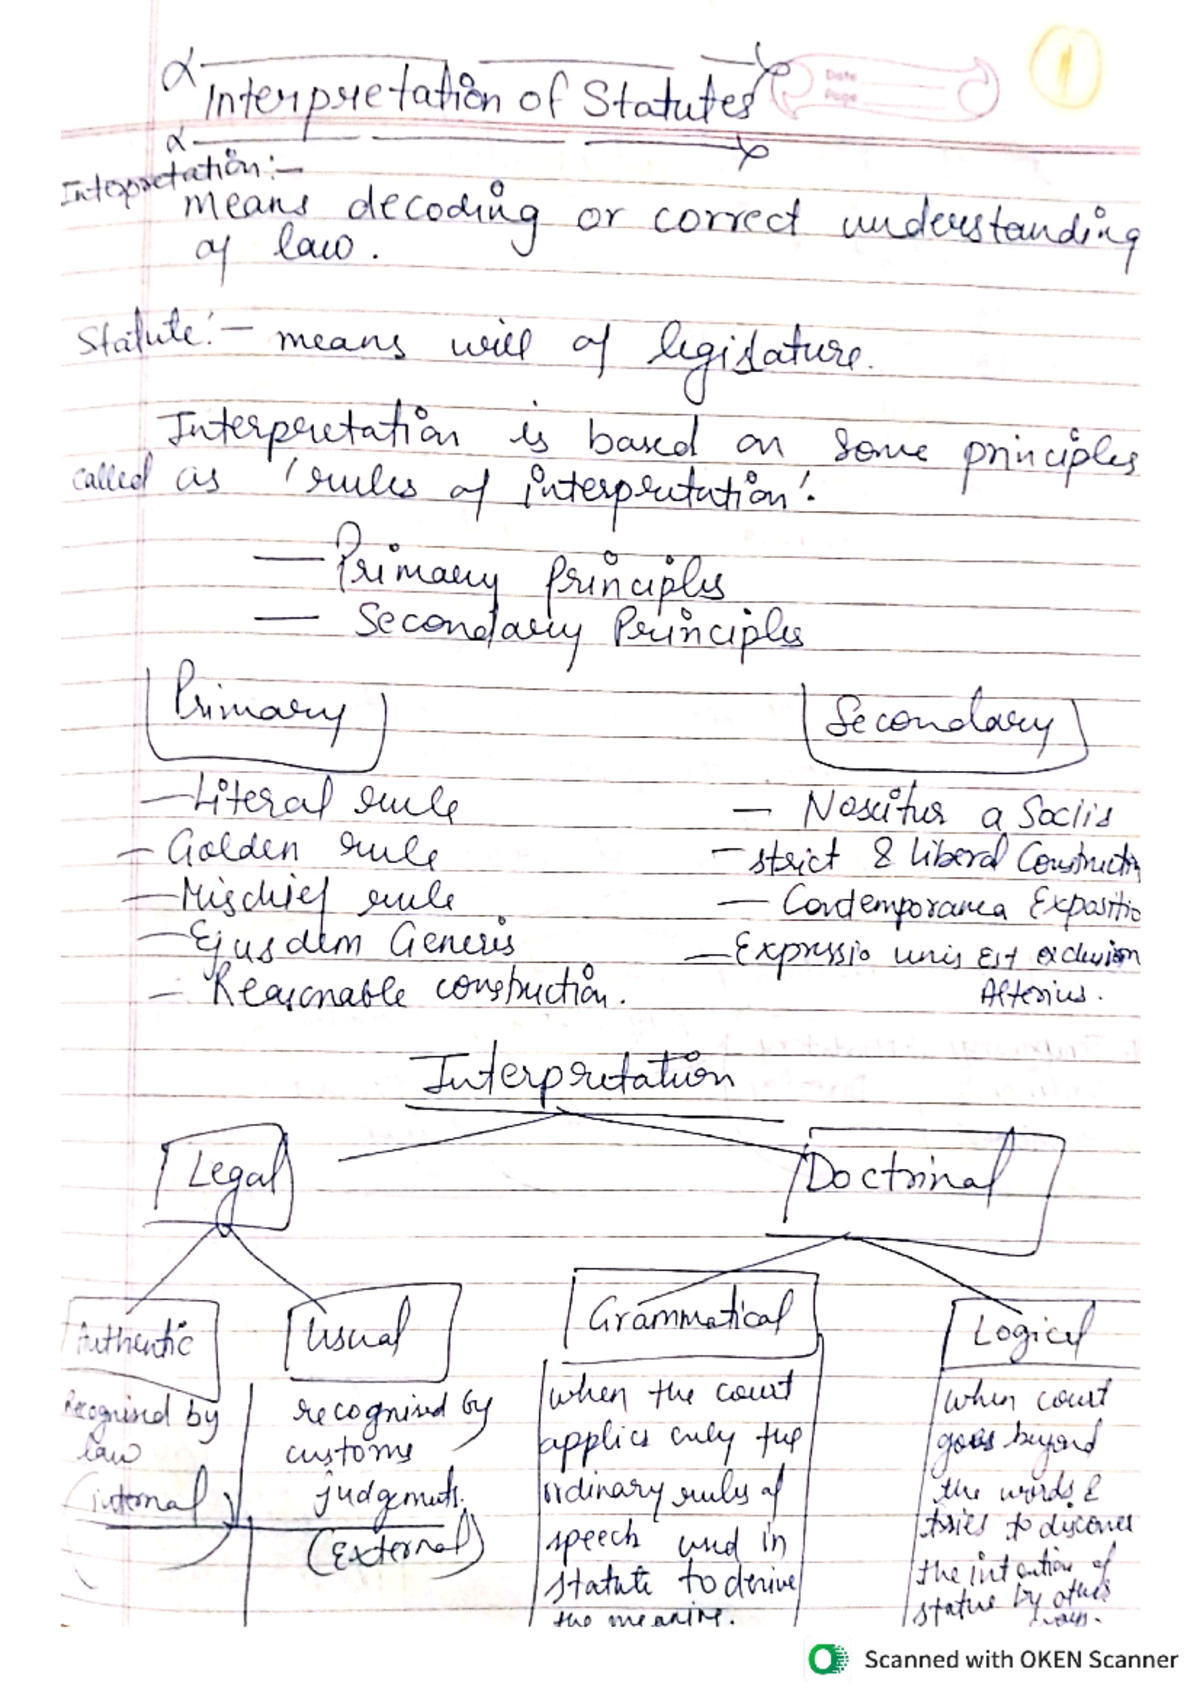 1
Date
Page
Interpretation of Statutes
Interpretation:-
means decoding or correct understanding
of law.
Statute:- means will of legislature.
Interpretation is based on some principles
called as 'rules of interpretation'.
— Primary Principles
— Secondary Principles
Primary
— Literal rule
— Golden rule
— Mischief rule
— Ejusdem Generis
— Reasonable construction.
Secondary
— Noscitur a Sociis
— strict & liberal Constructin
— Contemporanea Expositio
— Expressio unis Est exclusion
Alterius.
Interpretation
Legal
Doctrinal
Authentic
Recognised by
law
(internal)
Usual
recognised by
customs
judgments.
(External)
Grammatical
when the court
applies only the
ordinary rules of
speech used in
statute to derive
the meaning.
Logical
when court
goes beyond
the words &
tries to discover
the intention of
statue by other
ways.
Scanned with OKEN Scanner